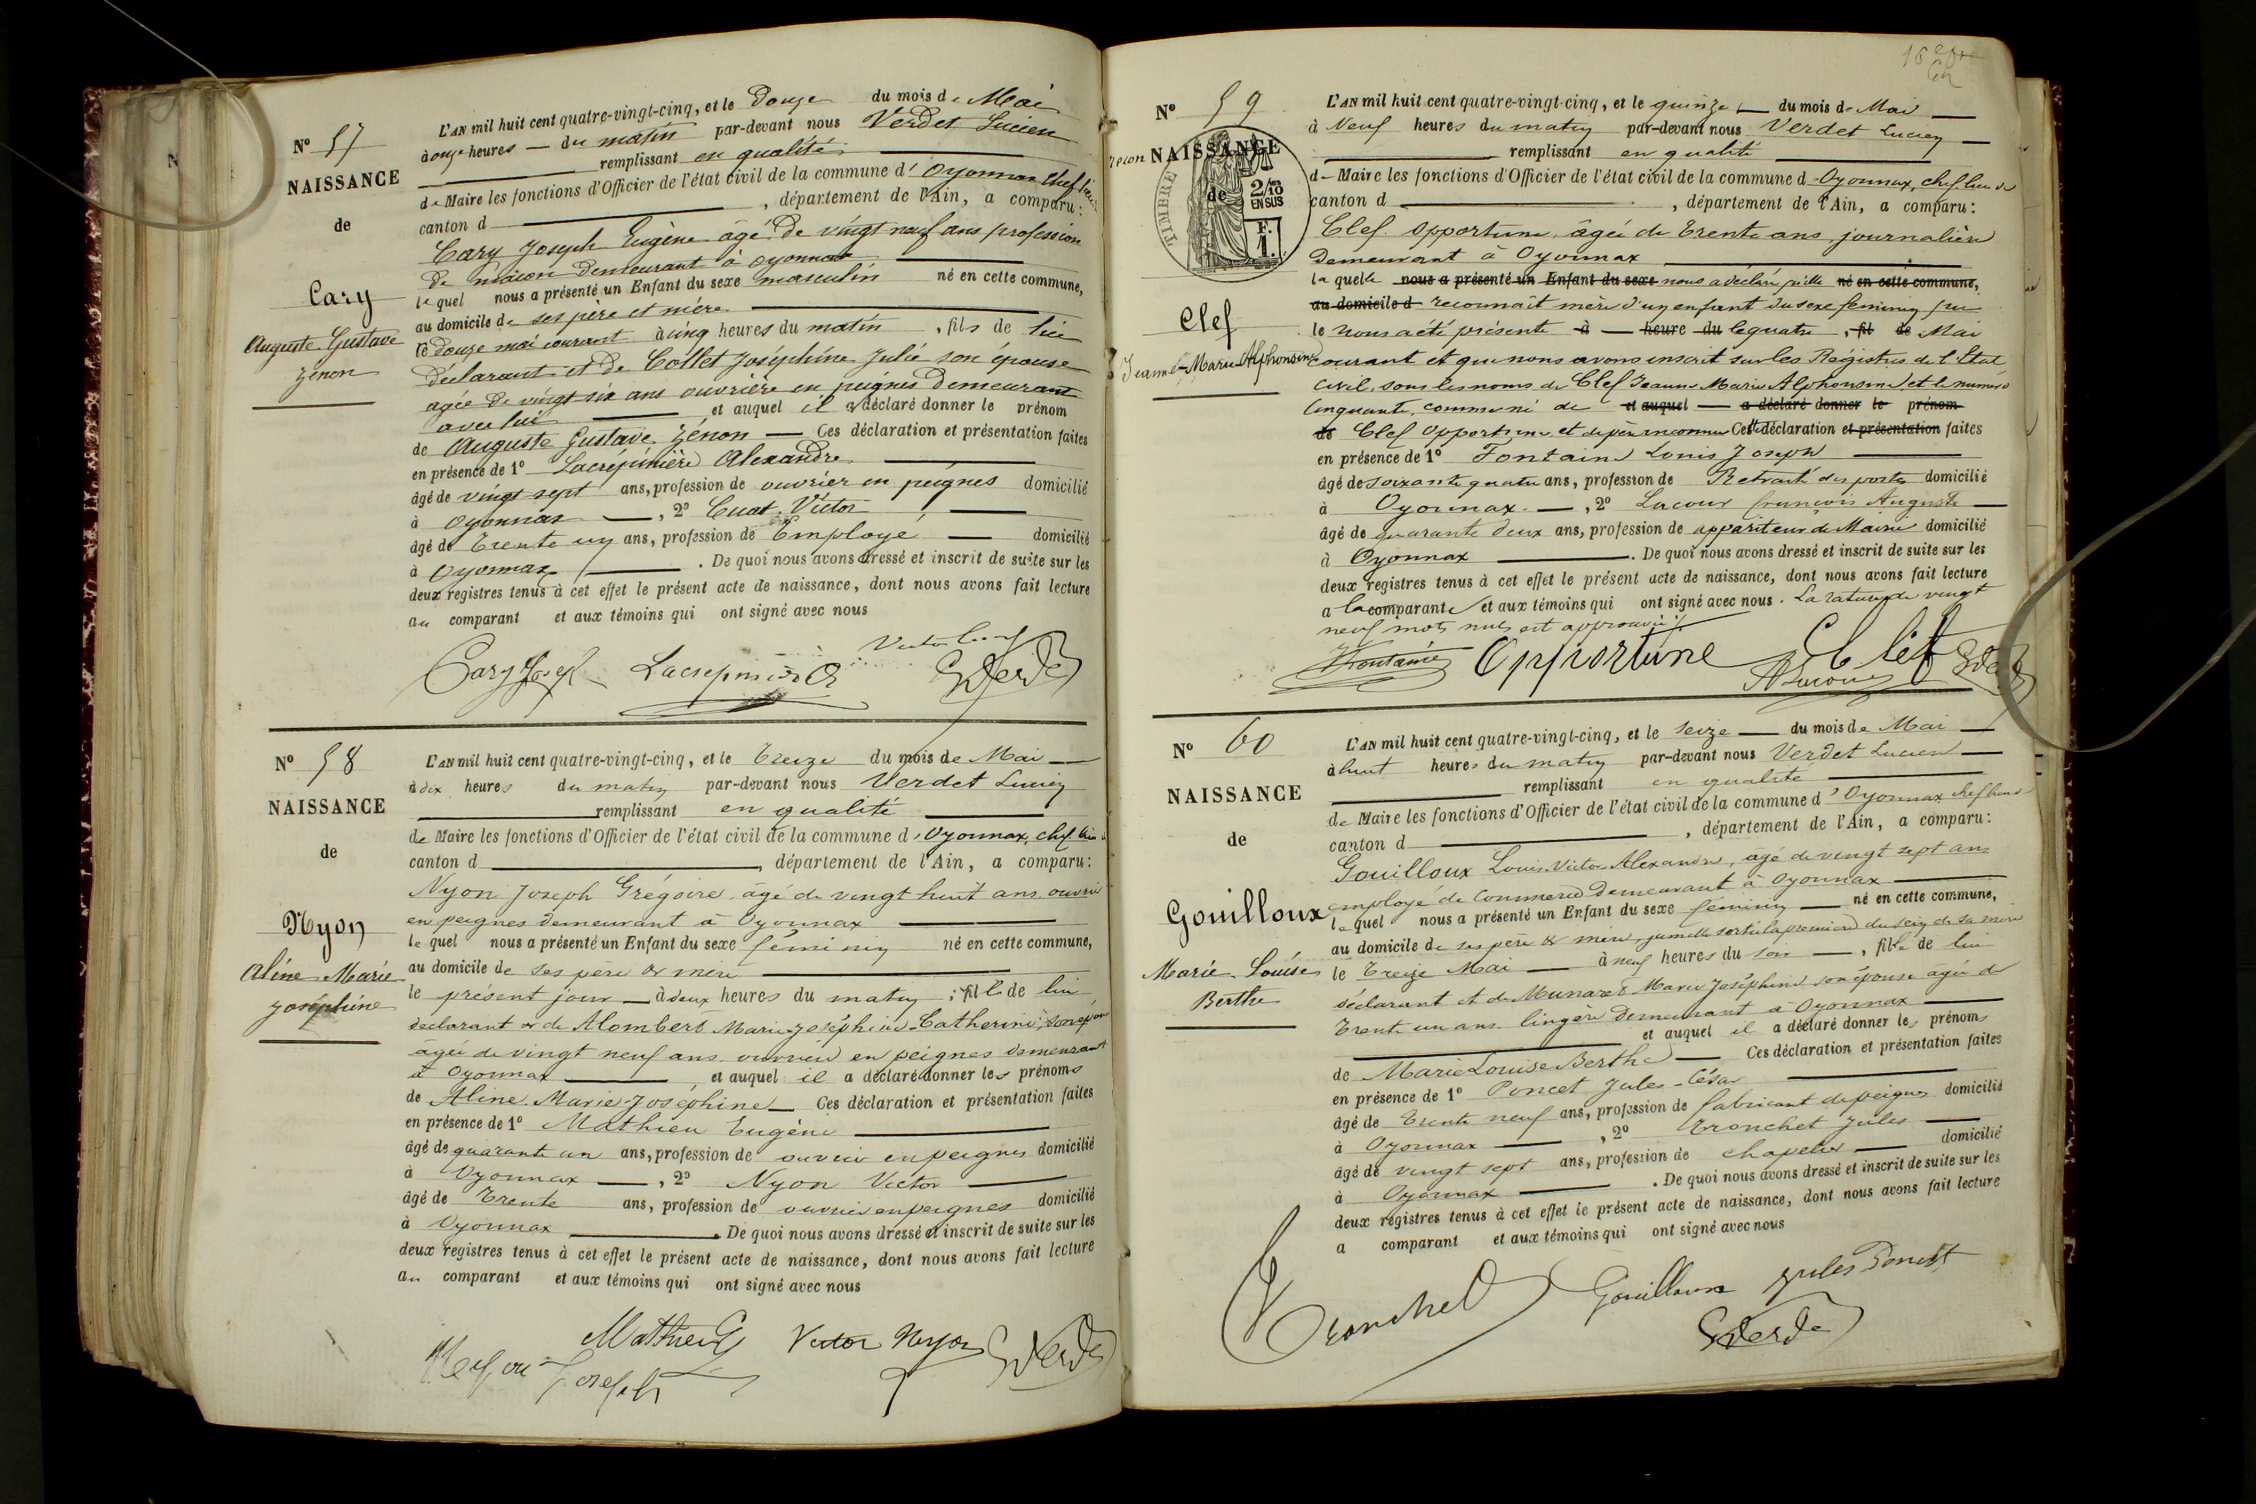 N° 57
NAISSANCE
de
Cary
Auguste Gustave
Zénon
L'AN mil huit cent quatre-vingt-cinq, et le Douze du mois de Mai
à onze heures — du matin par-devant nous Verdet Lucien
remplissant en qualité
de Maire les fonctions d'Officier de l'état civil de la commune d'Oyonnax chef lieu
canton d , département de l'Ain, a comparu:
Cary Joseph Eugène âgé de vingt neuf ans profession
de maçon demeurant à Oyonnax
lequel nous a présenté un Enfant du sexe masculin né en cette commune,
au domicile de ses père et mère
le douze mai courant à cinq heures du matin , fils de lui
déclarant et de Collet Joséphine Julie son épouse
agée de vingt six ans ouvrière en peignes demeurant
avec lui et auquel il a déclaré donner le prénom
de Auguste Gustave Zénon — Ces déclaration et présentation faites
en présence de 1° Lacrépinière Alexandre
âgé de vingt sept ans, profession de ouvrier en peignes domicilié
à Oyonnax — , 2° Cuat Victor
âgé de Trente un ans, profession de Employé — domicilié
à Oyonnax . De quoi nous avons dressé et inscrit de suite sur les
deux registres tenus à cet effet le présent acte de naissance, dont nous avons fait lecture
au comparant et aux témoins qui ont signé avec nous
Victor
Cary Lacrepinière Verdet
N° 58
NAISSANCE
de
Nyon
Aline Marie
Joséphine
L'AN mil huit cent quatre-vingt-cinq, et le Treize du mois de Mai —
à dix heures du matin par-devant nous Verdet Lucien
remplissant en qualité
de Maire les fonctions d'Officier de l'état civil de la commune d'Oyonnax, chef lieu d
canton d , département de l'Ain, a comparu:
Nyon Joseph Grégoire âgé de vingt huit ans ouvrier
en peignes demeurant à Oyonnax
lequel nous a présenté un Enfant du sexe féminin né en cette commune,
au domicile de ses père & mère
le présent jour — à deux heures du matin , fille de lui
déclarant & de Alombert Marie Joséphine Catherine, son épouse
âgée de vingt neuf ans ouvrière en peignes demeurant
à Oyonnax et auquel il a déclaré donner les prénoms
de Aline Marie Joséphine — Ces déclaration et présentation faites
en présence de 1° Mathieu Eugène
âgé de quarante un ans, profession de ouvrier en peignes domicilié
à Oyonnax — , 2° Nyon Victor
âgé de Trente ans, profession de ouvrier en peignes domicilié
à Oyonnax . De quoi nous avons dressé et inscrit de suite sur les
deux registres tenus à cet effet le présent acte de naissance, dont nous avons fait lecture
au comparant et aux témoins qui ont signé avec nous
Mathieu Victor Nyon Verdet
Joseph
N° 59
NAISSANCE
de
TIMBRE
2/10
EN SUS
F.
1.
Clef
Jeanne-Marie Alphonsine
L'AN mil huit cent quatre-vingt-cinq, et le quinze — du mois de Mai —
à Neuf heures du matin par-devant nous Verdet Lucien —
remplissant en qualité
de Maire les fonctions d'Officier de l'état civil de la commune d Oyonnax, chef lieu de
canton d , département de l'Ain, a comparu:
Clef Opportune âgée de Trente ans, journalière
demeurant à Oyonnax
laquelle nous a présenté un Enfant du sexe nous a déclaré qu'elle né en cette commune,
au domicile d reconnaît mère d'un enfant du sexe féminin qui
le nous a été présenté à — heure du le quatre , fil de Mai
courant et que nous avons inscrit sur les Régistres de l'Etat
civil, sous les noms de Clef Jeanne Marie Alphonsine et le numéro
Cinquante, comme né de et auquel — a déclaré donner le prénom
de Clef Opportune et de père inconnu Cette déclaration et présentation faites
en présence de 1° Fontaine Louis Joseph
âgé de soixante quatre ans, profession de Retraité des postes domicilié
à Oyonnax — , 2° Lacour François Auguste —
âgé de quarante deux ans, profession de appariteur de Mairie domicilié
à Oyonnax . De quoi nous avons dressé et inscrit de suite sur les
deux registres tenus à cet effet le présent acte de naissance, dont nous avons fait lecture
a la comparante et aux témoins qui ont signé avec nous. La rature de vingt
neuf mots nuls est approuvée
Fontaine Opportune Clef Verdet
ALacour
N° 60
NAISSANCE
de
Gouilloux
Marie Louise
Berthe
L'AN mil huit cent quatre-vingt-cinq, et le seize — du mois de Mai —
à huit heures du matin par-devant nous Verdet Lucien —
remplissant en qualité
de Maire les fonctions d'Officier de l'état civil de la commune d'Oyonnax chef lieu de
canton d , département de l'Ain, a comparu:
Gouilloux Louis Victor Alexandre, âgé de vingt sept ans
employé de commerce demeurant à Oyonnax
lequel nous a présenté un Enfant du sexe féminin — né en cette commune,
au domicile de ses père & mère, jumelle sortie la première du sein de sa mère
le Treize Mai — à neuf heures du soir — , fille de lui
déclarant et de Munaret Marie Joséphine son épouse âgée de
Trente un ans lingère demeurant à Oyonnax
et auquel il a déclaré donner les prénoms
de Marie Louise Berthe — Ces déclaration et présentation faites
en présence de 1° Poncet Jules-César
âgé de Trente neuf ans, profession de fabricant de peignes domicilié
à Oyonnax — , 2° Tronchet Jules —
âgé de vingt sept ans, profession de chapelier — domicilié
à Oyonnax . De quoi nous avons dressé et inscrit de suite sur les
deux registres tenus à cet effet le présent acte de naissance, dont nous avons fait lecture
a comparant et aux témoins qui ont signé avec nous
Tronchet Gouilloux Jules Poncet
Verdet